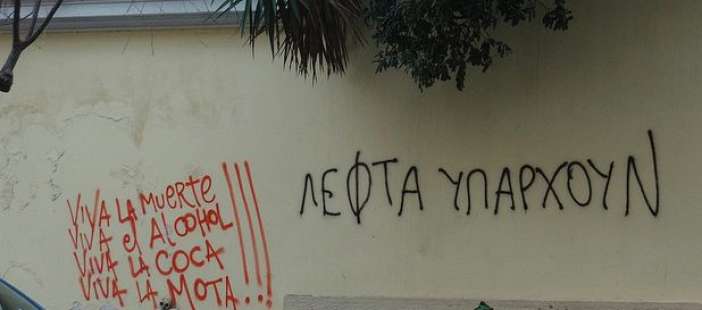 VIVA LA MUERTE
VIVA el ALCOHOL
VIVA LA COCA
VIVA LA MOTA...!!!!
ΛΕΦΤΑ ΥΠΑΡΧΟΥΝ